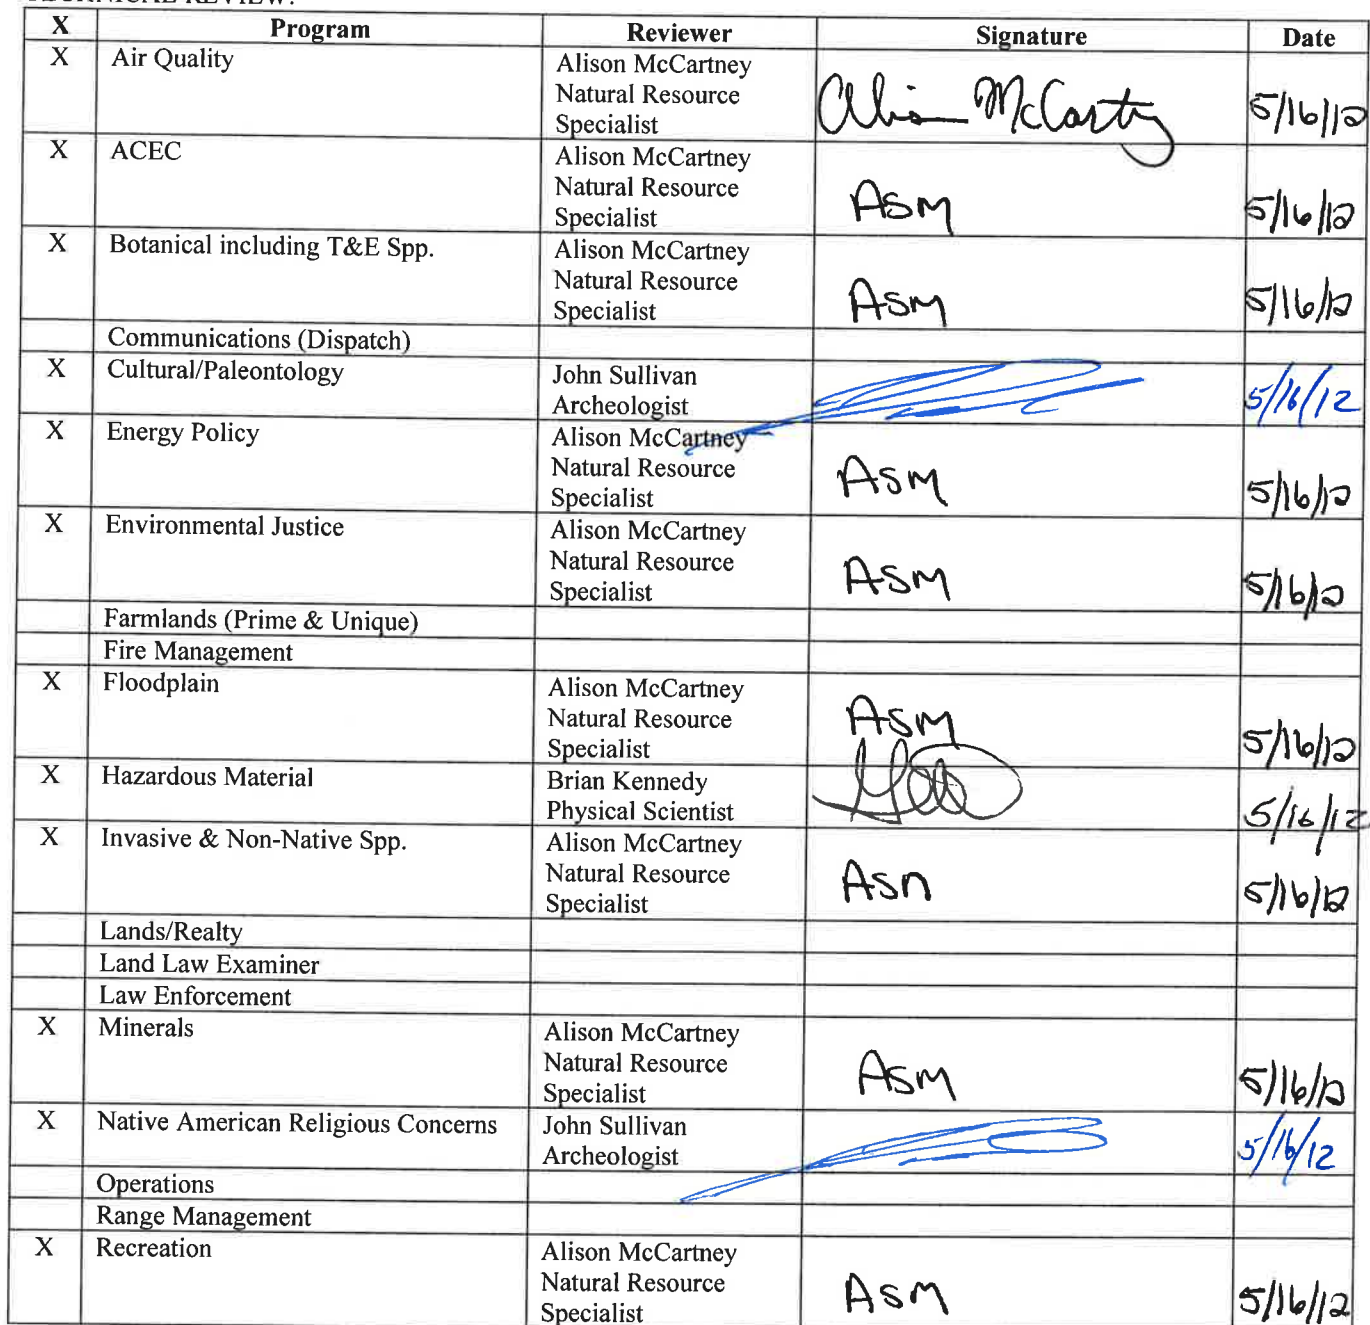 TECHNICAL REVIEW:
X Program Reviewer Signature Date
X Air Quality Alison McCartney
Natural Resource
Specialist Alison McCartney 5/16/12
X ACEC Alison McCartney
Natural Resource
Specialist ASM 5/16/12
X Botanical including T&E Spp. Alison McCartney
Natural Resource
Specialist ASM 5/16/12
Communications (Dispatch)
X Cultural/Paleontology John Sullivan
Archeologist 5/16/12
X Energy Policy Alison McCartney
Natural Resource
Specialist ASM 5/16/12
X Environmental Justice Alison McCartney
Natural Resource
Specialist ASM 5/16/12
Farmlands (Prime & Unique)
Fire Management
X Floodplain Alison McCartney
Natural Resource
Specialist ASM 5/16/12
X Hazardous Material Brian Kennedy
Physical Scientist 5/16/12
X Invasive & Non-Native Spp. Alison McCartney
Natural Resource
Specialist ASM 5/16/12
Lands/Realty
Land Law Examiner
Law Enforcement
X Minerals Alison McCartney
Natural Resource
Specialist ASM 5/16/12
X Native American Religious Concerns John Sullivan
Archeologist 5/16/12
Operations
Range Management
X Recreation Alison McCartney
Natural Resource
Specialist ASM 5/16/12